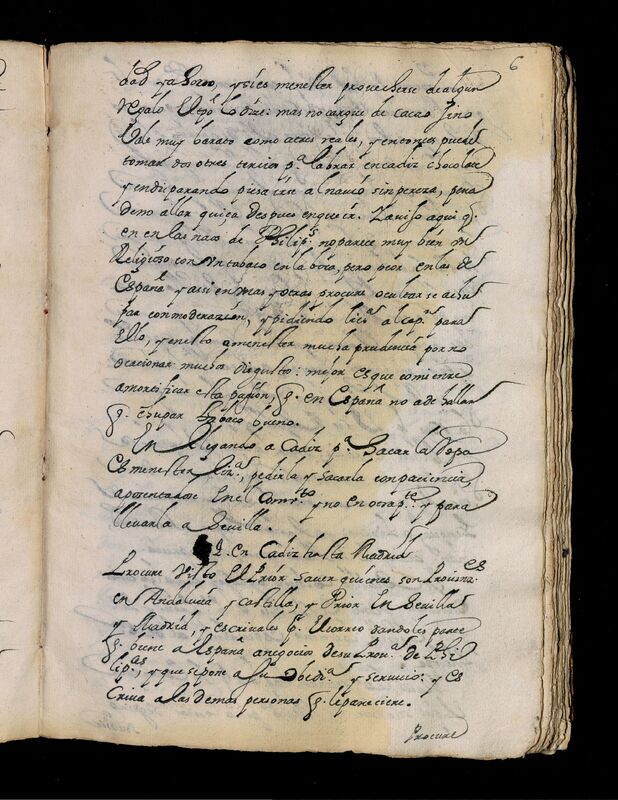 6
dad y ahorro, y si es menester provecherse de algun
regalo El tpo lo dize: mas no cargue de cacao sino
Vale muy barato como a tres reales, y entonces puede
tomar dos o tres tercios pa labrar en cadiz chocolate
y en disparando piesa irse al navio sin pereza, pena
de no allar quiça despues en que ir. Lo aviso aqui q.
en en las naos de Philips no parece muy bien un
Religioso con un tabaco en la boca, pero peor en las de
España y assi en unas y otras procure ocultarse a chu
par con moderacion, y pidiendo lica al capn para
Ello, y en esto a menester mucha prudencia por no
ocacionar mucho disgusto: mejor es que comience
a mortificar esta passion, q. en España no a de hallar
q. chupar tabaco bueno.
En llegando a Cadiz pa Sacar la Ropa
es menester liza, pedirla y sacarla con paciencia,
aposentarse En el Convto y no en otra pte y para
llevarla a Sevilla.
en Cadiz hasta Madrid
Procure Visto El Prior saver quienes son Provinzes
en Andalucia y Castilla, y Prior En Sevilla
y Madrid, y escrivales pr El correo dandoles parte
q. biene a España a negocio de su Prova de Phi
lipas, y que se pone a su obedia y servicio: y es
criva a las demas personas q. le pareciere.
Procure